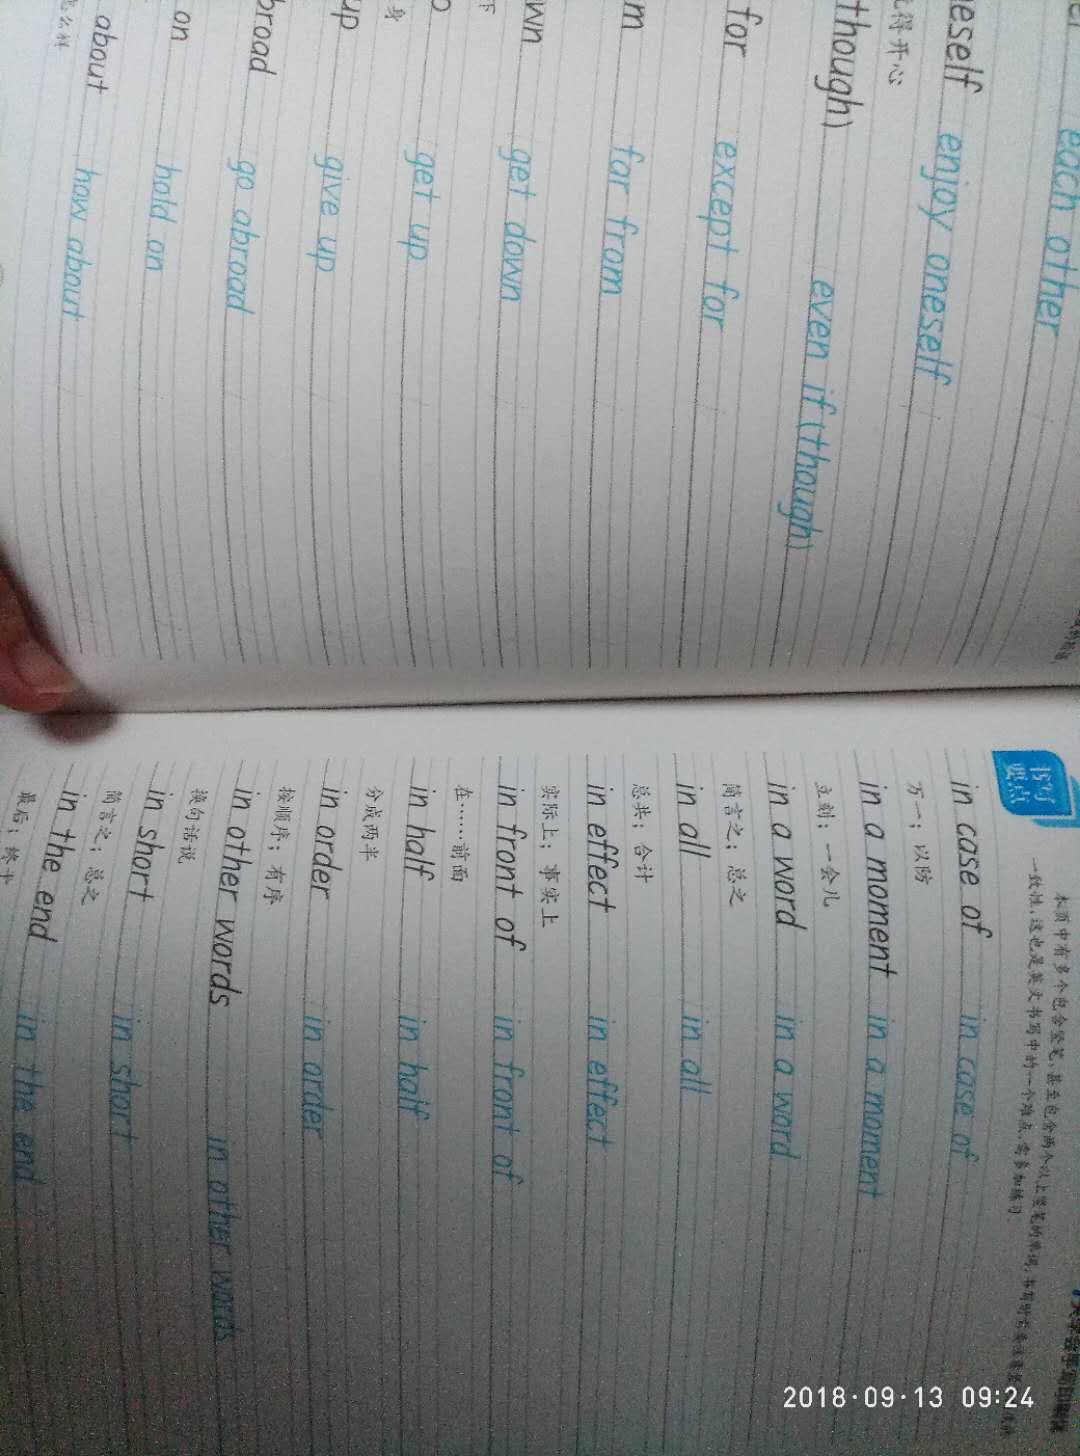 each other
eself enjoy oneself
得开心
though) even if (though)
for except for
m far from
wn get down
下
get up
身
up give up
broad go abroad
on hold on
about how about
么样
书写要点
本页中有多个包含竖笔,甚至包含两个以上竖笔的单词,书写时
一致性,这也是英文书写中的一个难点,需多加练习.
in case of in case of
万一;以防
in a moment in a moment
立刻;一会儿
in a word in a word
简言之;总之
in all in all
总共;合计
in effect in effect
实际上;事实上
in front of in front of
在……前面
in half in half
分成两半
in order in order
按顺序;有序
in other words in other words
换句话说
in short in short
简言之;总之
in the end in the end
最后;终于
2018·09·13 09:24